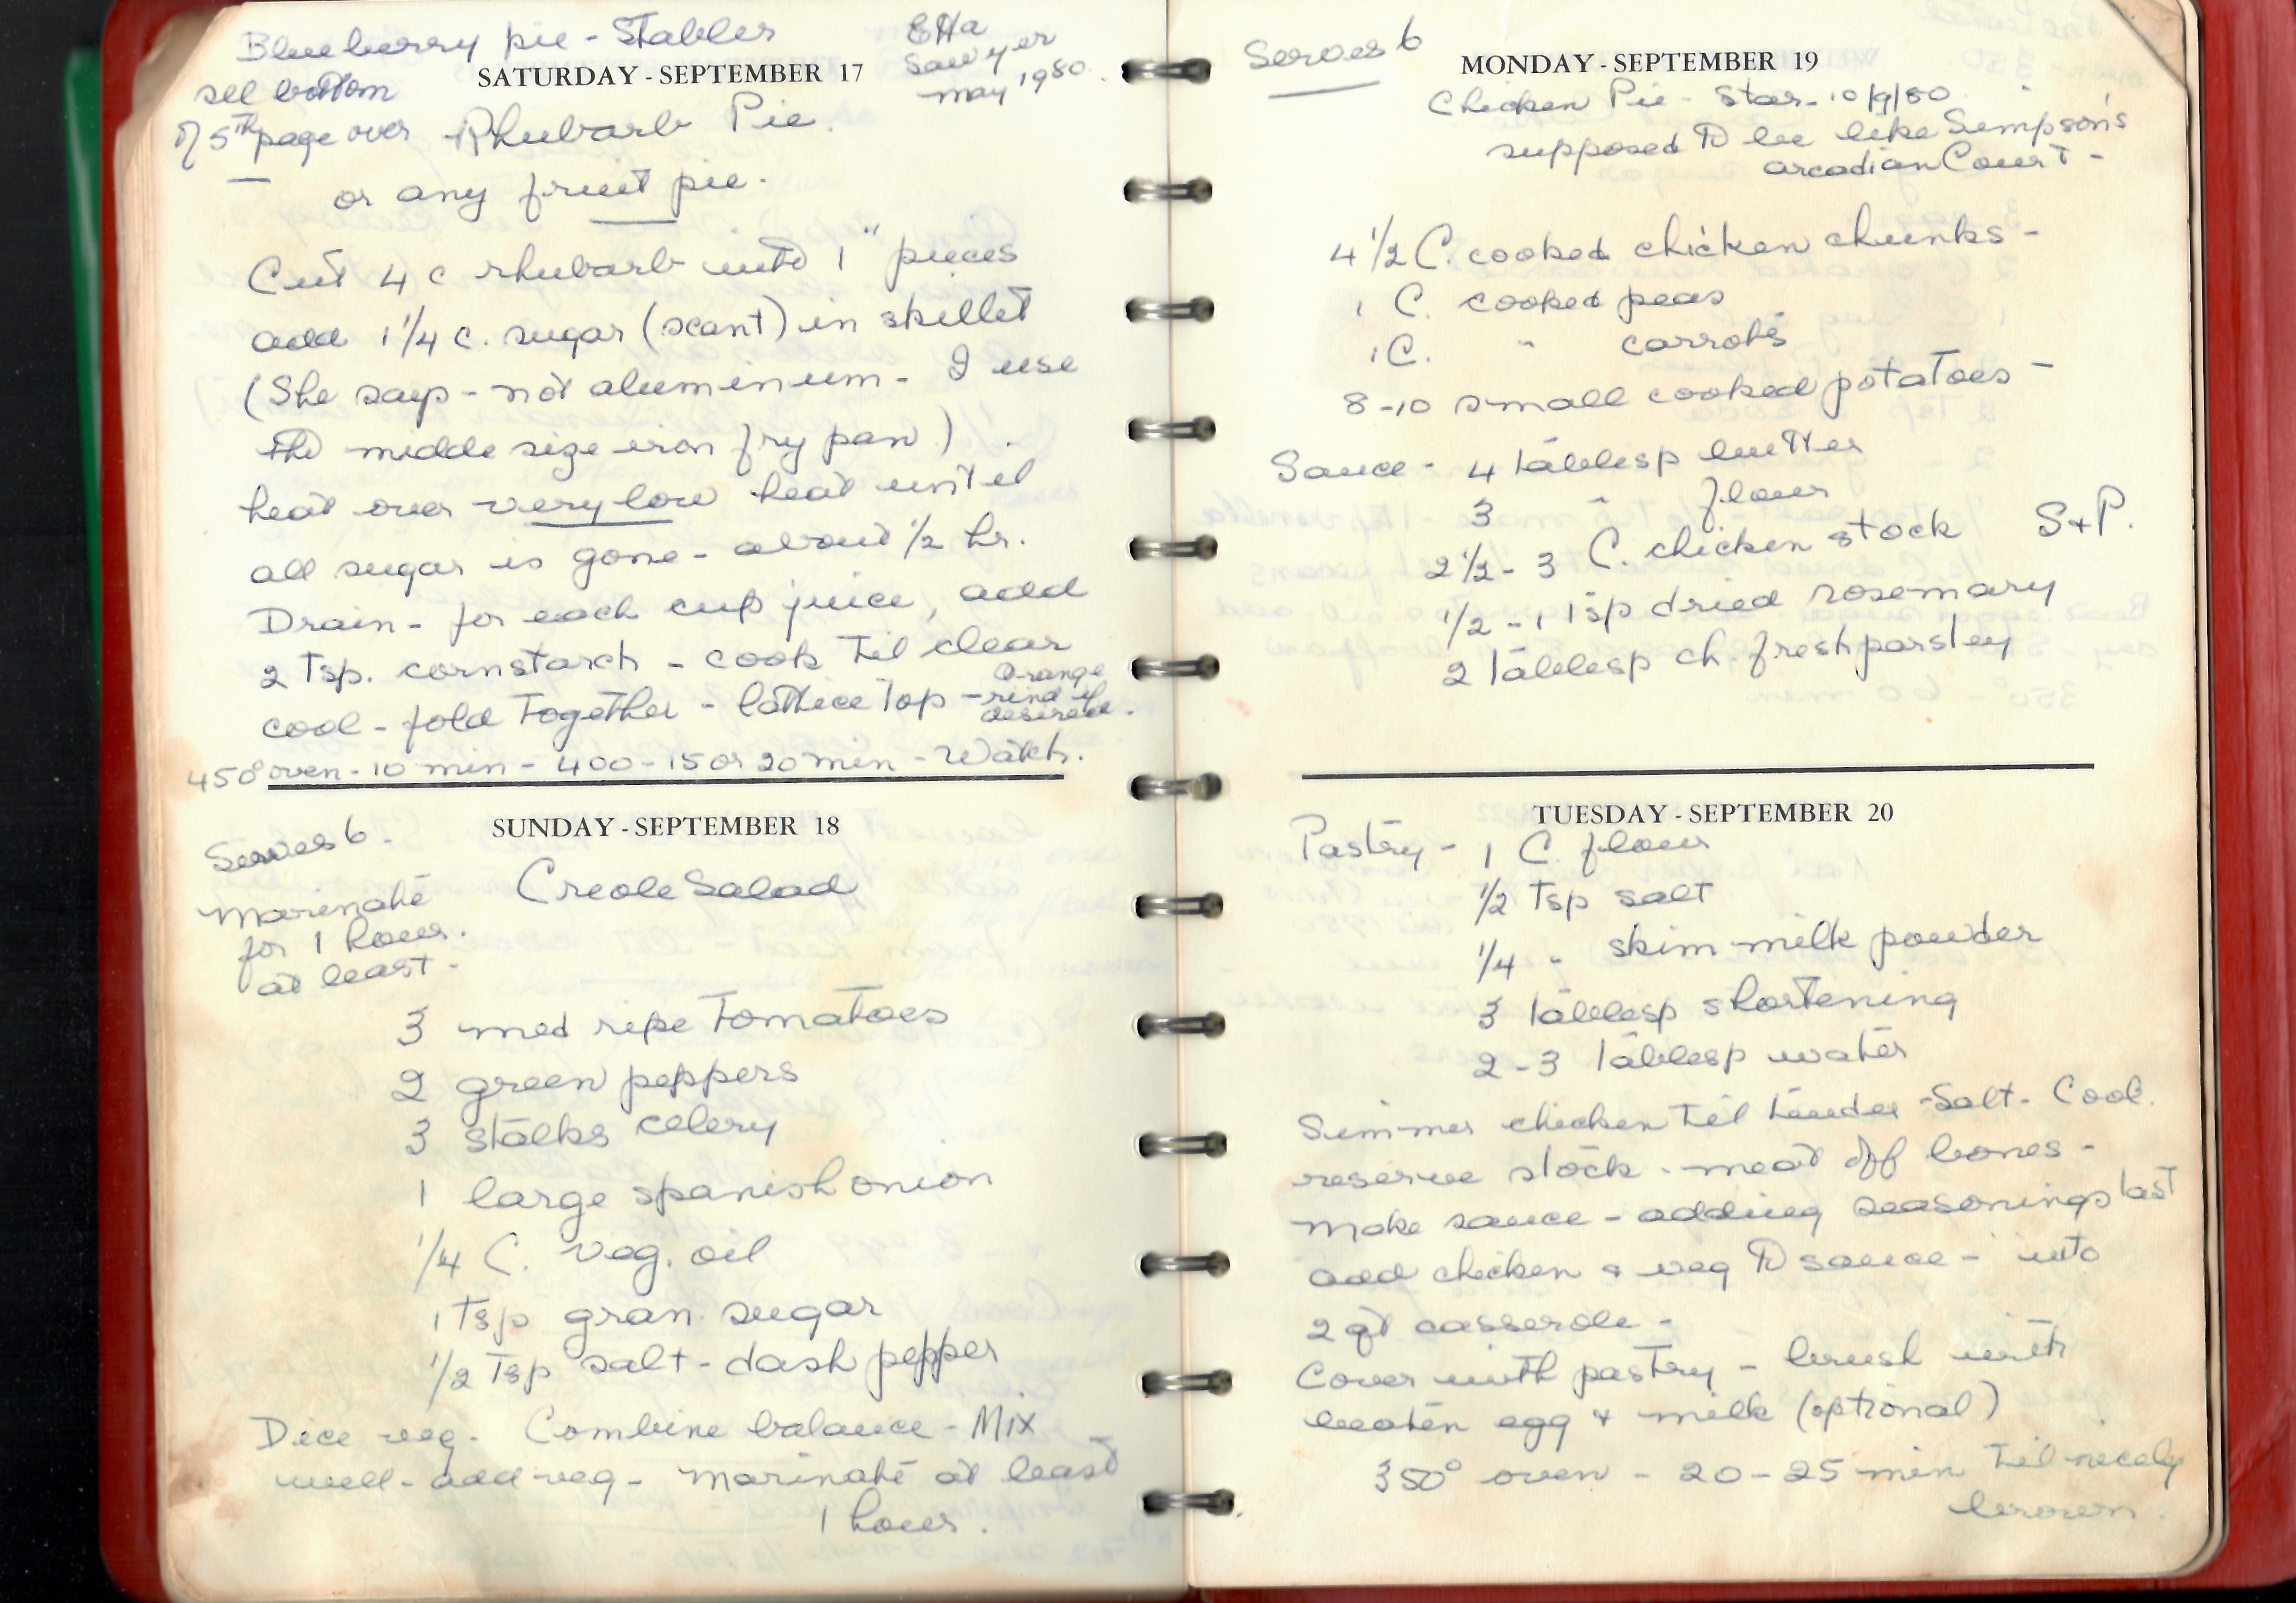 Blueberry pie - Stabler
see bottom
of 5th page over
SATURDAY - SEPTEMBER 17
Etta
Sawyer
May 1980.
Rhubarb Pie.
or any fruit pie.
Cut 4 c rhubarb into 1" pieces
add 1 1/4 c. sugar (scant) in skillet
(She says - not aluminium - I use
the middle size iron fry pan)
heat over very low heat until
all sugar is gone - about 1/2 hr.
Drain - for each cup juice, add
2 Tsp. cornstarch - cook Til clear
cool - fold Together - lattice Top - orange
rind if
desired.
450° oven - 10 min - 400 - 15 or 20 min - Watch.
SUNDAY - SEPTEMBER 18
Serves 6.
Marinate
for 1 hour.
at least.
Creole Salad
3 med ripe Tomatoes
2 green peppers
3 stalks celery
1 large spanish onion
1/4 C. veg. oil
1 Tsp gran. sugar
1/2 Tsp salt - dash pepper
Dice veg. Combine balance - Mix
well - add veg - Marinate at least
1 hour.
Serves 6
MONDAY - SEPTEMBER 19
Chicken Pie - Star - 10/9/80
supposed To be like Simpson's
arcadian Court -
4 1/2 C. cooked chicken chunks -
1 C. cooked peas
1 C. " carrots
8-10 small cooked potatoes -
Sauce - 4 Tablesp butter
3 " flour
2 1/2 - 3 C. chicken stock S + P.
1/2 - 1 Tsp dried rosemary
2 Tablesp ch. fresh parsley
TUESDAY - SEPTEMBER 20
Pastry - 1 C. flour
1/2 Tsp salt
1/4 " skim milk powder
3 Tablesp shortening
2-3 Tablesp water
Simmer chicken Til Tender - Salt - Cool.
reserve stock - meat off bones -
Make sauce - adding seasonings last
add chicken & veg To sauce - into
2 qt casserole -
Cover with pastry - brush with
beaten egg & milk (optional)
350° oven - 20-25 min Til nicely
brown.